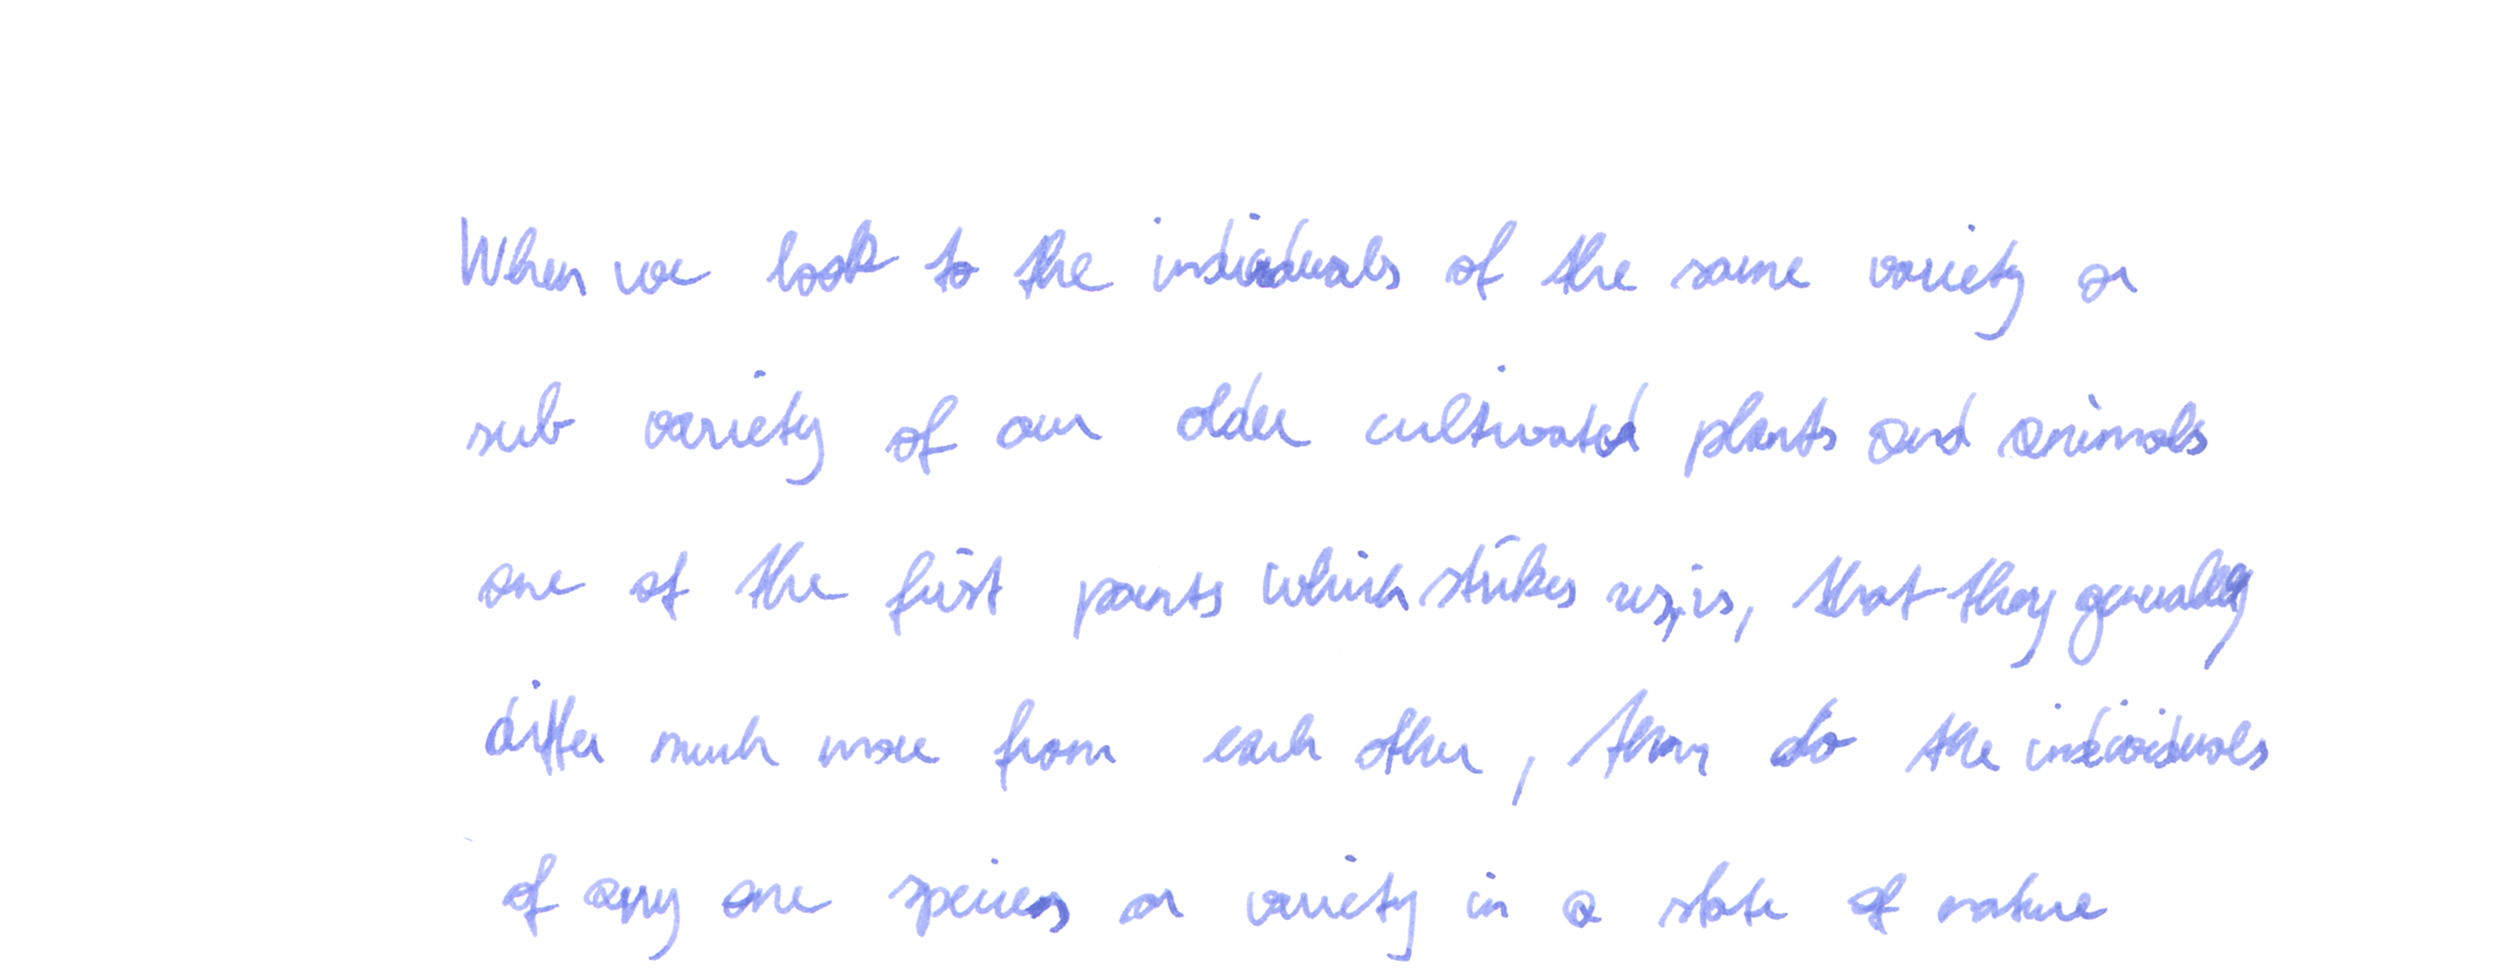 When we look to the individuals of the same variety or
sub variety of our older cultivated plants and animals
one of the first points which strikes us, is, that they generally
differ much more from each other, than do the individuals
of any one species or variety in a state of nature